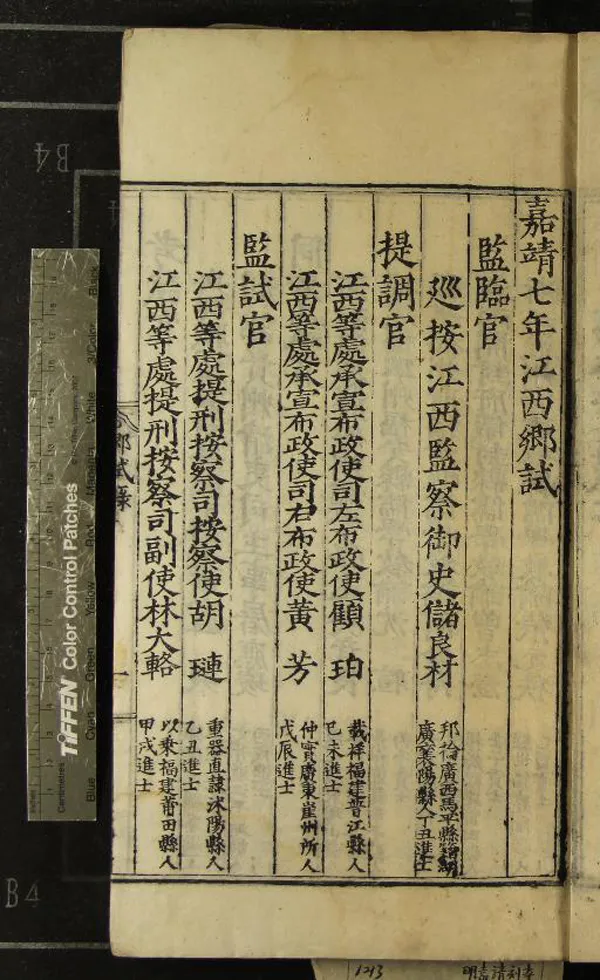 嘉靖七年江西鄉試
監臨官
巡按江西監察御史儲良材
邦掄廣西馬平縣籍湖
廣襄陽縣人丁丑進士
提調官
江西等處承宣布政使司左布政使顧珀
載祥福建晉江縣人
己未進士
江西等處承宣布政使司右布政使黃芳
仲實廣東崖州所人
戊辰進士
監試官
江西等處提刑按察司按察使胡璉
重器直隸沭陽縣人
乙丑進士
江西等處提刑按察司副使林大輅
以乘福建莆田縣人
甲戌進士
鄉試錄
一
B4
B4
TIFFEN Color Control Patches
Blue
Cyan
Green
Yellow
Red
Magenta
White
3/Color
Black
Centimetres
Inches
1213